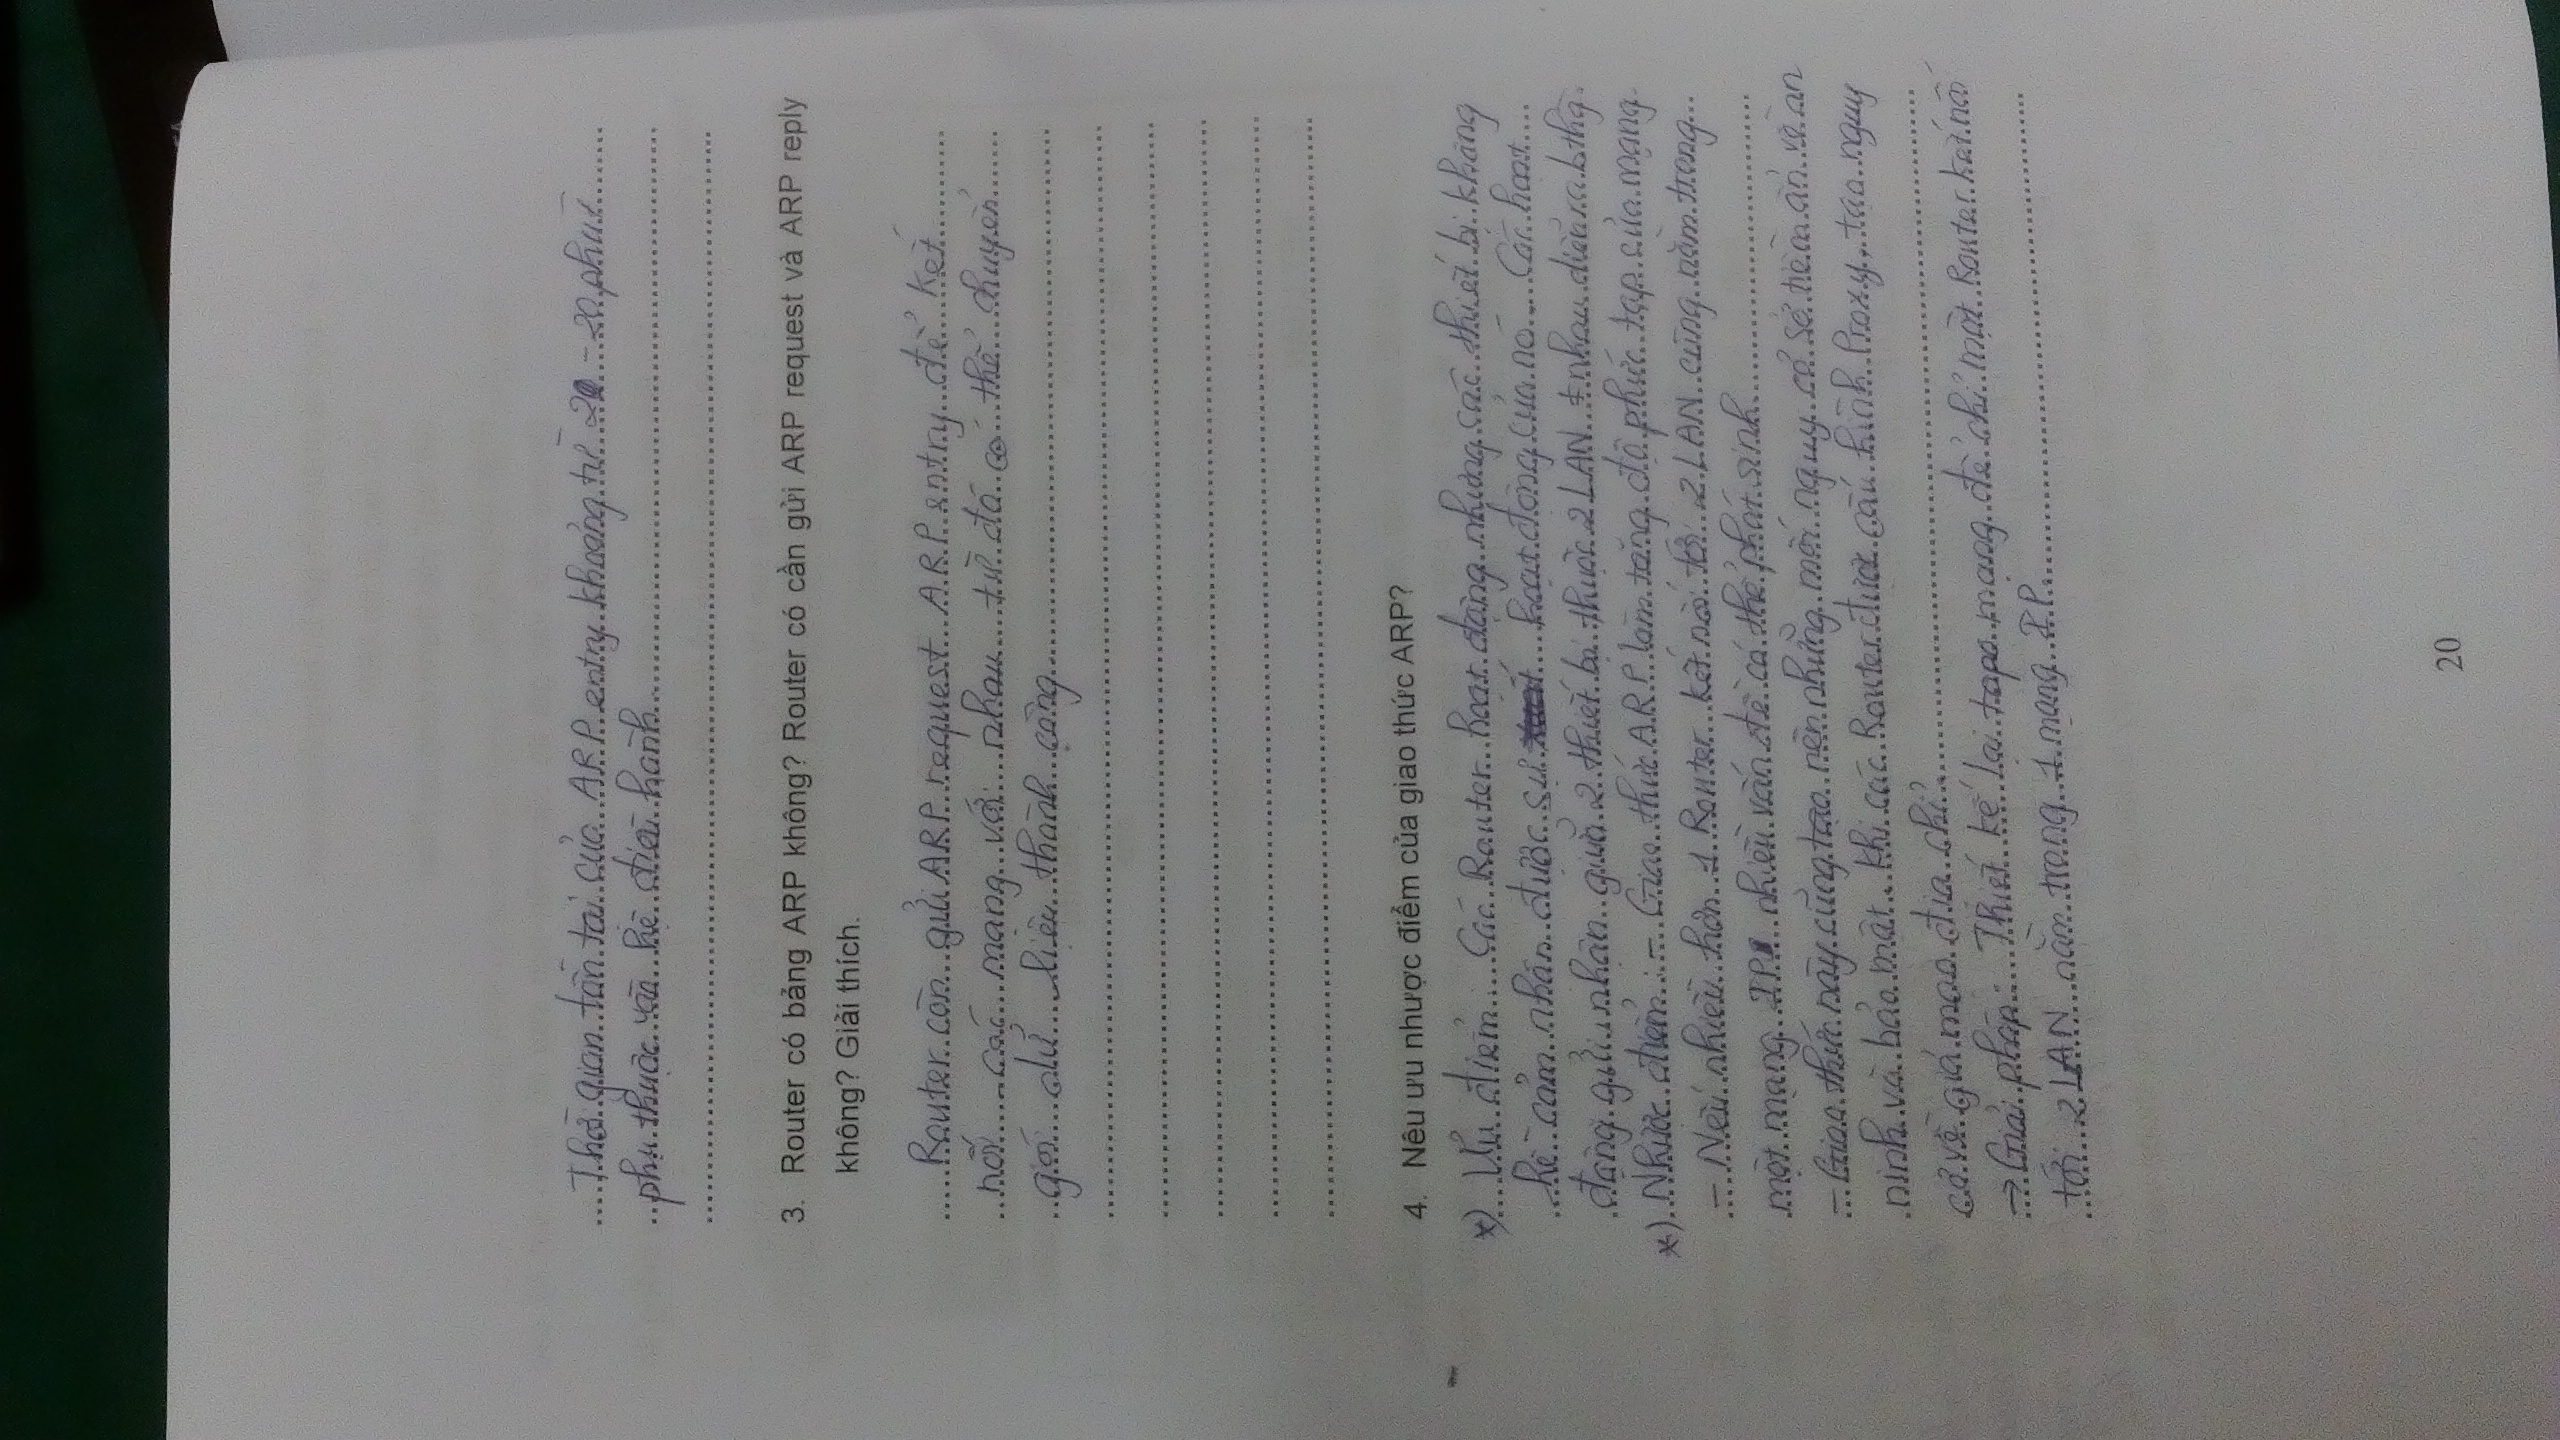 Thời gian tồn tại của ARP entry khoảng từ 2 - 20 phút
phụ thuộc vào hệ điều hành
3. Router có bảng ARP không? Router có cần gửi ARP request và ARP reply
không? Giải thích.
Router cần gửi ARP request ARP entry để kết
nối các mạng với nhau từ đó có thể chuyển
gói dữ liệu thành công
4. Nêu ưu nhược điểm của giao thức ARP?
*) Ưu điểm Các Router hoạt động nhưng các thiết bị không
hề cảm nhận được sự hoạt động của nó. Các hoạt
động gửi nhận giữa 2 thiết bị thuộc 2 LAN ≠ nhau diễn ra bthg.
*) Nhược điểm : - Giao thức ARP làm tăng độ phức tạp của mạng
- Nếu nhiều hơn 1 Router kết nối tới 2 LAN cùng nằm trong
một mạng IP nhiều vấn đề có thể phát sinh
- Giao thức này cũng tạo nên những mối nguy cơ sở tiềm ẩn về an
ninh và bảo mật, khi các Router được cấu hình Proxy, tạo nguy
cơ về giả mạo địa chỉ.
→ Giải pháp: Thiết kế lại topo mạng để chỉ một Router kết nối
tới 2 LAN nằm trong 1 mạng IP.
20